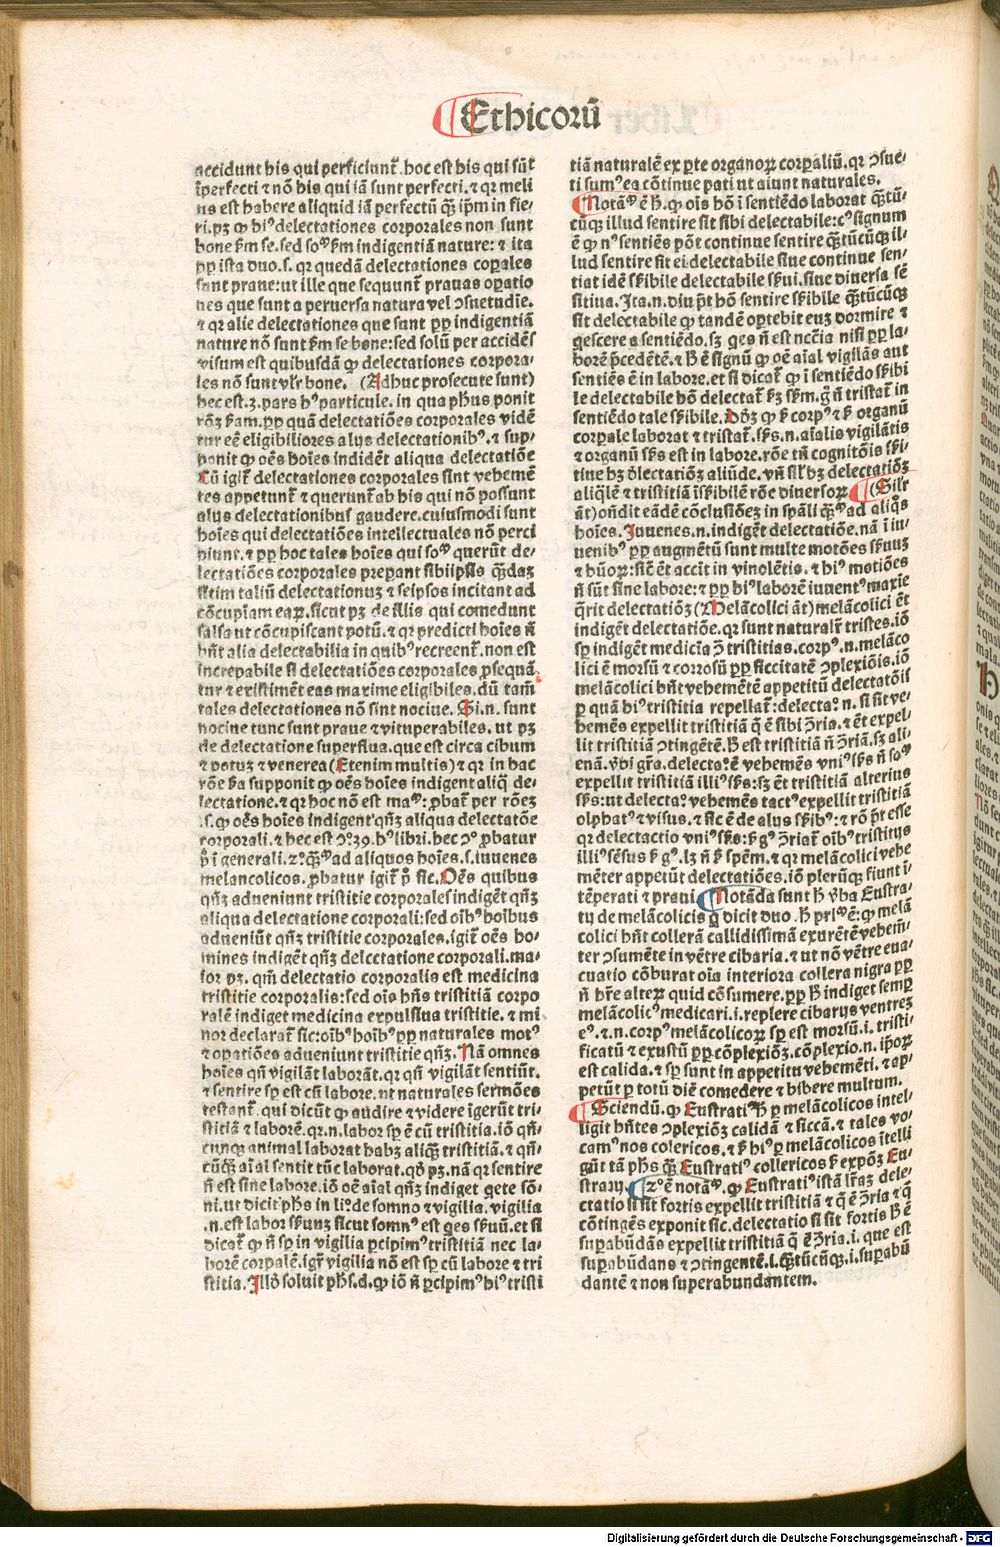 Ethicorū
accidunt his qui perficiunt᷑.hoc est his qui sūt
īperfecti ⁊ nō his qui iā sunt perfecti.⁊ qr meli
us est habere aliquid iā perfectū q̄ꝫ ip̄m in fie⸗
ri.pꝫ ꝙ hiꝰ delectationes corporales non sunt
bone ẜm se.sed soᵐ ẜm indigentiā nature: ⁊ ita
ꝓp ista duo.s. qr quedā delectationes coꝑales
sunt praue:ut ille que sequunt᷑ prauas oꝑatio
nes que sunt a peruersa natura vel ↄsuetudie.
⁊ qr alie delectationes que sunt ꝓp indigentiā
nature nō sunt ẜm se bone:sed solū per accidēs
visum est quibusdā ꝙ delectationes corpora⸗
les nō sunt vl'r bone. (Adhuc prosecute sunt)
hec est.3.pars hꝰ particule. in qua ph̄us ponit
rōꝫ ẜam.ꝓp quā delectatiōes corporales vidē
tur eē eligibiliores alijs delectationibꝰ.⁊ sup⸗
ponit ꝙ oēs hoīes indidēt aliqua delectatiōe
Cū igit᷑ delectationes corporales sint vehemē
tes appetunt᷑ ⁊ querunt᷑ ab his qui nō possunt
alijs delectationibus gaudere.cuiusmodi sunt
hoīes qui delectatiōes intellectuales nō perci
piunt.⁊ ꝓp hoc tales hoīes qui soᵐ querūt de⸗
lectatiōes corporales preparant sibiipsis q̄sdaꝫ
sitim taliū delectationuꝫ ⁊ seipsos incitant ad
cōcupiam eaꝝ.sicut pꝫ de illis qui comedunt
salsa ut cōcupiscant potū.⁊ qr predicti hoīes ñ
hn̄t alia delectabilia in quibꝰ recreent᷑.non est
increpabile si delectatiōes corporales ꝓsequā
tur ⁊ existimēt eas maxime eligibiles.dū tam̄
tales delectationes nō sint nociue. Si.n. sunt
nociue tunc sunt praue ⁊ vituperabiles. ut pꝫ
de delectatione superflua.que est circa cibum
⁊ potuꝫ ⁊ venerea (Etenim multis) ⁊ qr in hac
rōe ẜa supponit ꝙ oēs hoīes indigent aliq̄ de⸗
lectatione.⁊ qr hoc nō est maᵐ: ꝓbat᷑ per rōeꝫ
.s. ꝙ oēs hoīes indigent qn̄qꝫ aliqua delectatōe
corporali.⁊ hec est ↄᵒ.39.hꝰ libri.hec ↄᵒ ꝓbatur
pᵒ ī generali.2ᵒ.q̄ꝫᵐ ad aliquos hoīes.s.iuuenes
melancolicos. ꝓbatur igit᷑ pᵒ sic. Oēs quibus
qn̄qꝫ adueniunt tristitie corporales indigēt qn̄ꝫ
aliqua delectatione corporali:sed oībꝰ hoībus
adueniūt qn̄qꝫ tristitie corporales.igit᷑ oēs ho⸗
mines indigēt qn̄ꝫ delectatione corporali.ma⸗
ior pꝫ. qm̄ delectatio corporalis est medicina
tristitie corporalis:sed oīa hn̄s tristitiā corpo
ralē indiget medicina expulsiua tristitie. ⁊ mi
nor declarat᷑ sic:oībꝰ hoībꝰ ꝓp naturales motꝰ
⁊ oꝑatiōes adueniunt tristitie qn̄ꝫ. Nā omnes
hoīes qn̄ vigilāt laborāt.qr qn̄ vigilāt sentiūt.
⁊ sentire sp est cū labore. ut naturales sermōes
testant᷑. qui dicūt ꝙ audire ⁊ videre īgerūt tri⸗
stitiā ⁊ laborē.qr.n.labor sp ē cū tristitia.iō qn̄⸗
cunqꝫ animal laborat habꝫ aliq̄ꝫ tristitiā.⁊ qn̄⸗
cūqꝫ aīal sentit tūc laborat.qᵒ pꝫ.nā qr sentire
ñ est sine labore.iō oē aīal qn̄ꝫ indiget qete sō⸗
ni.ut dicit ph̄s in liᵒ.de somno ⁊ vigilia. vigilia
.n.est labor sēsuuꝫ sicut somnꝰ est qes sēsuū.et si
dicat᷑ ꝙ ñ sp in vigilia ꝑcipimꝰ tristitiā nec la⸗
borē corpalē.igr̄ vigilia nō est sp cū labore ⁊ tri
stitia. Illᵒ soluit ph̄s.d.ꝙ iō ñ ꝑcipimꝰ hiꝰ tristi
tiā naturalē ex ꝑte organoꝝ corꝑaliū.qr ↄsue⸗
ti sumꝰ ea cōtinue pati ut aiunt naturales.
Notāᵐ ē ħ. ꝙ oīs hō ī sentiēdo laborat q̄ꝫtū⸗
cūqꝫ illud sentire sit sibi delectabile:cꝰ signum
ē ꝙ nꝰ sentiēs pōt continue sentire q̄ꝫtūcūqꝫ il⸗
lud sentire sit ei delectabile siue continue sen⸗
tiat idē sēsibile delectabile sēsui.siue diuersa sē
sitiua. Ita.n.diu pōt hō sentire sēsibile q̄ꝫtūcūqꝫ
sit delectabile ꝙ tandē oꝑtebit euꝫ dormire ⁊
qescere a sentiēdo.sꝫ qes ñ est ncc̄ia nisi ꝓp la⸗
borē p̄cedētē.⁊ ħ ē signū ꝙ oē aīal vigilās aut
sentiēs ē in labore.et si dicat᷑ ꝙ ī sentiēdo sēsibi
le delectabile hō delectat᷑ ẜꝫ sēsm.gᵒ ñ tristat᷑ in
sentiēdo tale sēsibile. Dōꝫ ꝙ ẜ corpꝰ ⁊ ẜ organū
corpale laborat ⁊ tristat᷑. sēs.n.aīalis vigilātis
⁊ organū sēs est in labore.rōe tn̄ cognitōis sēsi⸗
tiue hꝫ delectatiōꝫ aliūde. vn̄ sil' hꝫ delectatiōꝫ
aliq̄lē ⁊ tristitiā īsēsibilē rōe diuersoꝝ (Silr
āt) on̄dit eādē cōclusiōeꝫ in sp̄ali q̄ꝫᵐ ad aliq̄s
hoīes. Iuuenes.n.indigēt delectatiōe.nā ī iu⸗
uenibꝰ ꝓp augmētū sunt multe motōes sēsuuꝫ
⁊ hūoꝝ:sic ēt accīt in vinolētis. ⁊ hiꝰ motiōes
ñ sūt sine labore:⁊ ꝓp hiꝰ laborē iuuentꝰ maxie
q̄rit delectatiōꝫ (Melācolici āt) melācolici ēt
indigēt delectatiōe. qr sunt naturalr̄ tristes.iō
sp indigēt medicīa ↄ̄ tristitias.corpꝰ.n.melāco
lici ē morsū ⁊ corrosū ꝓp siccitatē ↄplexiōis.iō
melācolici hn̄t vehemētē appetitū delectatōis
ꝑ quā hiꝰ tristitia repellat᷑:delectaᵒ.n. si sit ve⸗
hemēs expellit tristitiā q̄ ē sibi ↄ̄ria.⁊ ēt expel⸗
lit tristitiā ↄtingētē.ħ est tristitiā ñ ↄ̄riā.sꝫ ali⸗
enā.v̄bi gr̄a.delectaᵒ ē vehemēs vniꝰ sēs ñ soᵐ
expellit tristitiā illiꝰ sēs:sꝫ ēt tristitiā alterius
sēs:ut delectaᵒ vehemēs tactꝰ expellit tristitiā
olphatꝰ ⁊ visus. ⁊ sic ē de alijs sēsibꝰ:⁊ rō p̄t esse
qr delectactio vniꝰ sēs: ẜ gᵒ ↄ̄riat᷑ oībꝰ tristitijs
illiꝰ sēsus ẜ gᵒ. lꝫ ñ ẜ spēm.⁊ qr melācolici vehe
mēter appetūt delectatiōes.iō plerūqꝫ fiunt ī⸗
tēperati ⁊ praui. Notāda sunt ħ v̄ba Eustra⸗
tij de melācolicis q̄ dicit duo. ħ prīᵐ ē: ꝙ melā
colici hn̄t collerā callidissimā exurētē vehem̄⸗
ter ↄsumēte in vētre cibaria.⁊ ut nō vētre eua⸗
cuatio cōburat oīa interiora collera nigra ꝓp
ñ hr̄e alteꝝ quid cōsumere.ꝓp ħ indiget semꝑ
melācolicꝰ medicari.i.replere cibarijs ventreꝫ
eꝰ.⁊.n.corpꝰ melācolicoꝝ sp est morsū.i. tristi⸗
ficatū ⁊ exustū ꝓp cōplexiōꝫ.cōplexio.n. ip̄oꝝ
est calida.⁊ sp sunt in appetitu vehemēti.⁊ ap⸗
petūt ꝑ totū diē comedere ⁊ bibere multum.
Sciendū.ꝙ Eustratiꝰ ħ ꝑ melācolicos intel⸗
ligit hn̄tes ↄplexiōꝫ calidā ⁊ siccā.⁊ tales vo⸗
camꝰ nos colericos.⁊ ẜ hiꝰ ꝑ melācolicos ītelli
gūt tā ph̄s q̄ꝫ Eustratiꝰ collericos ẜ expōꝫ Eu⸗
stratij. 2ᵒ ē notāᵐ. ꝙ Eustratiꝰ istā lr̄aꝫ dele⸗
ctatio si sit fortis expellit tristitiā ⁊ q̄ ē ↄ̄ria ⁊ q̄
cōtingēs exponit sic.delectatio si sit fortis ħ ē
suꝑabūdās expellit tristitiā q̄ ē ↄ̄ria.i. que est
suꝑabūdans ⁊ ↄtingentē.i.q̄ꝫtūcūqꝫ.i.suꝑabū
dantē ⁊ non superabundantem.
Digitalisierung gefördert durch die Deutsche Forschungsgemeinschaft - DFG